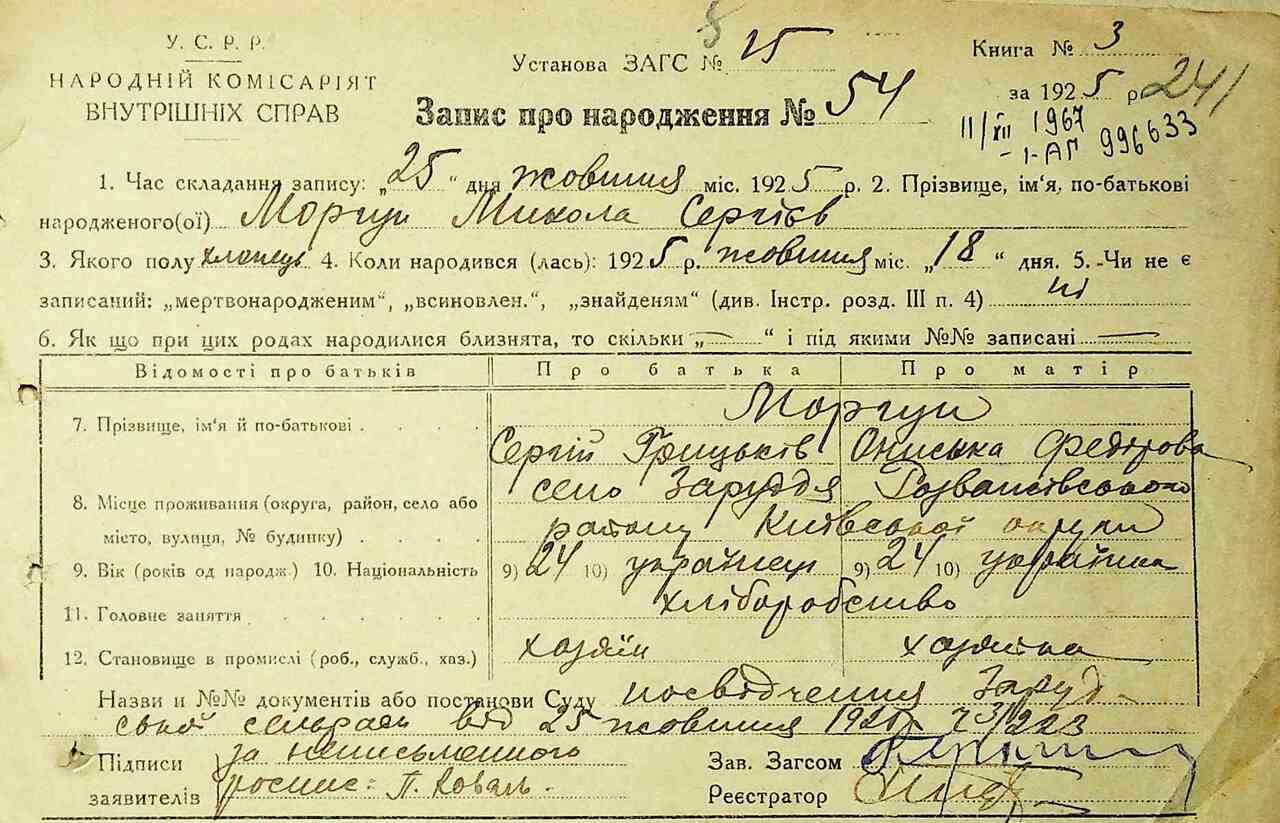 У. С. Р. Р.
НАРОДНІЙ КОМІСАРІЯТ
ВНУТРІШНІХ СПРАВ
Установа ЗАГС № 25
Книга № 3
за 1925 р. 241
Запис про народження № 54
11/XII 1967
I-АГ 996633
1. Час складання запису: „25“ дня жовтня міс. 1925 р. 2. Прізвище, ім'я, по-батькові
народженого(ої) Моргун Микола Сергіїв
3. Якого полу хлопець 4. Коли народився (лась): 1925 р. жовтня міс. „18“ дня. 5. Чи не є
записаний: „мертвонародженим“, „всиновлен.“, „знайденям“ (див. Інстр. розд. III п. 4) ні
6. Як що при цих родах народилися близнята, то скільки „—“ і під якими №№ записані —
Відомості про батьків Про батька Про матір
Моргун
7. Прізвище, ім'я й по-батькові . . . .
Сергій Грицьків Ониська Федорова
село Заруддя Розважівського
8. Місце проживання (округа, район, село або
місто, вулиця, № будинку) . . . .
району Київської округи
9. Вік (років од народж.) 10. Національність 9) 24 10) українец 9) 24 10) українка
11. Головне заняття . . . . . . хліборобство
12. Становище в промислі (роб., служб., хаз.) хазяїн хазяйка
Назви и №№ документів або постанови Суду посвідчення Заруд-
ської сельради від 25 жовтня 1925
Підписи за неписьменного
заявителів роспис: П. Коваль.
Зав. Загсом
Реєстратор